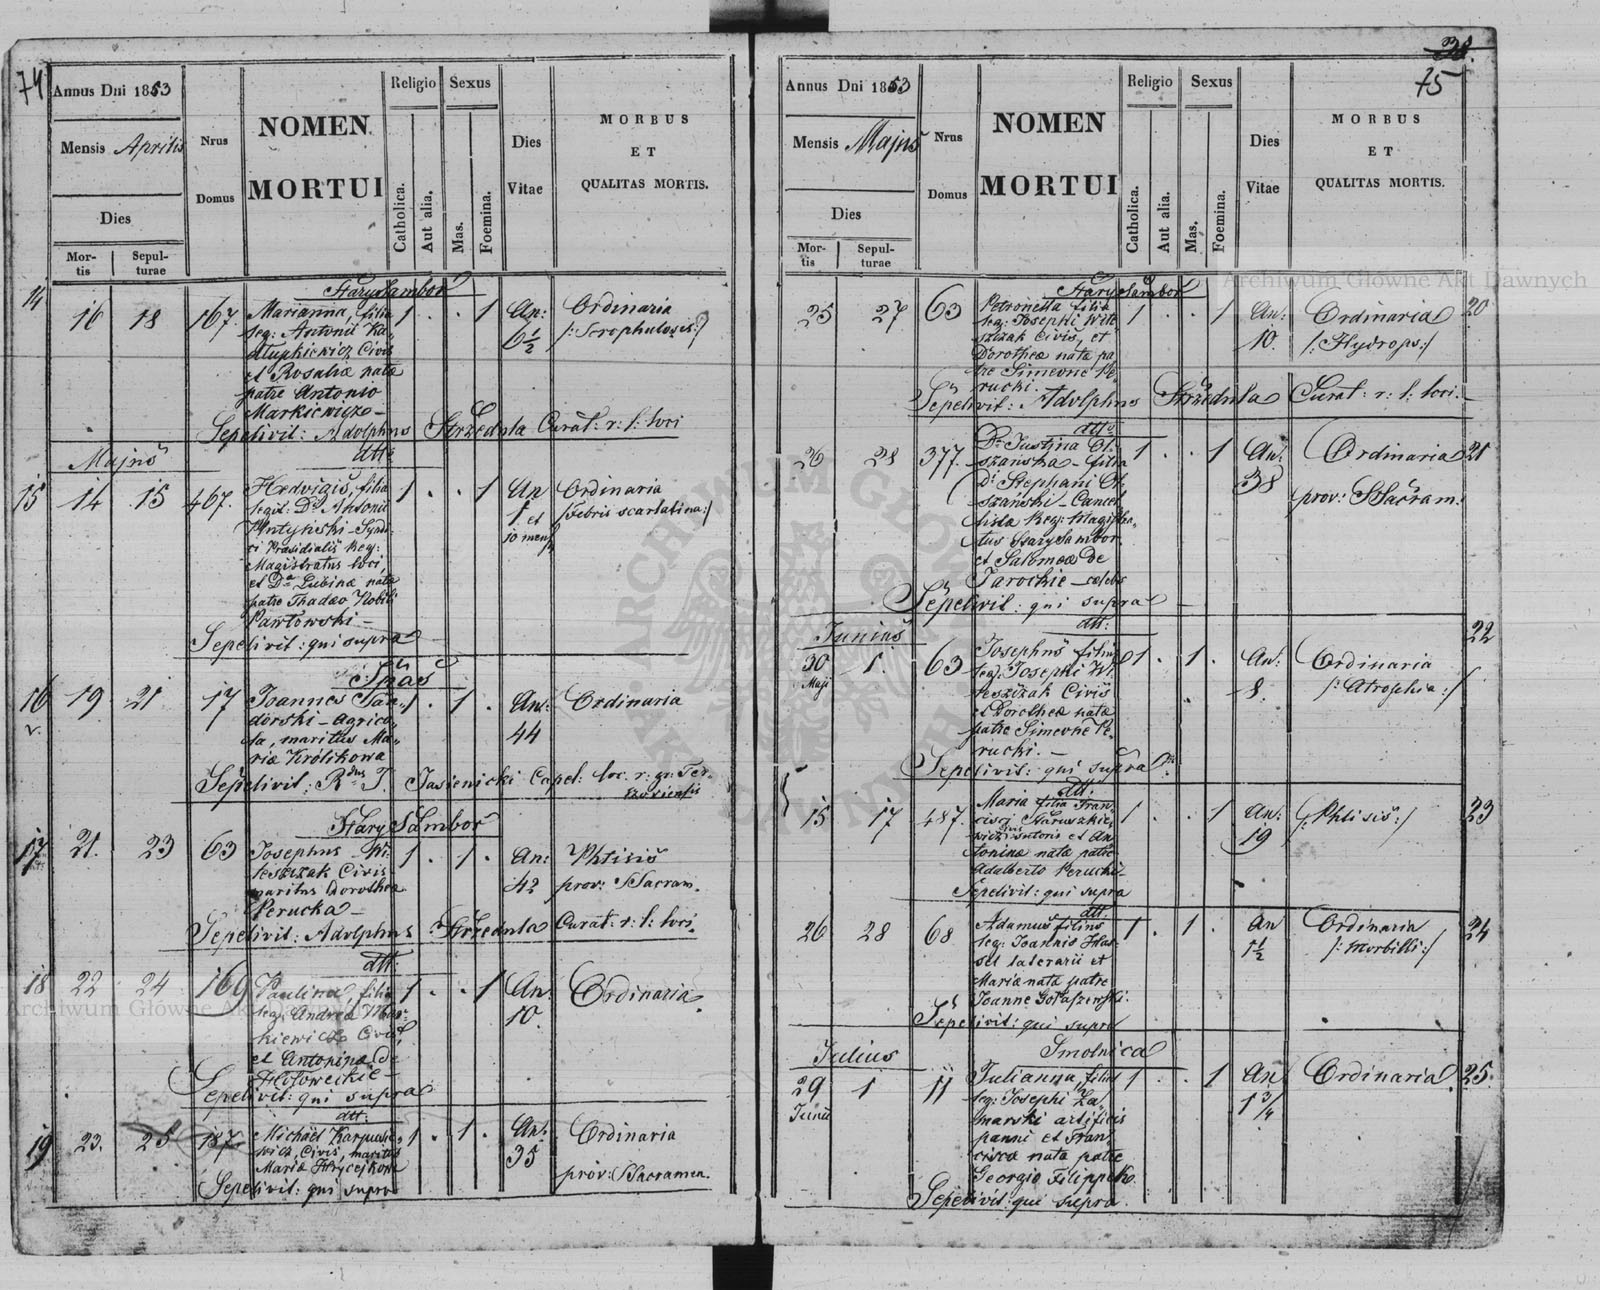 74
Annus Dni 1853
Mensis Aprilis
Dies
Mortis
Sepulturae
Nrus Domus
NOMEN MORTUI
Religio
Catholica.
Aut alia.
Sexus
Mas.
Foemina.
Dies Vitae
MORBUS
ET
QUALITAS MORTIS.
Stary Sambor
14 16 18 167. Marianna, filia 1 . . 1 An: Ordinaria
leg: Antonii Ka 6½ /:Scrophulosis:/
Civis
et Rosaliæ nata
patre Antonio
Markiewicz
Sepelivit: Adolphus Strzednla Curat: r: l: loci
Majus
dtto
15 14 15 467. Hedvigis, filia 1 . . 1 An Ordinaria
legit: Di Antonii 1 et /Febris scarlatina:/
10 mens
ci Præsidialis Reg:
Magistratus loci,
et Dæ Lubinæ nata
patre Thadæo Nobili
Pawłowski
Sepelivit: qui supra
Spas
16 19 21 17 Joannes San- 1 . 1 . An: Ordinaria
dorski - agrico- 44
la, maritus Ma-
riæ Królikowa
Sepelivit: Rdus J. Jasienicki Capel: loc. r: gr: Ter-
Stary Sambor
17 21. 23 63 Josephus Wi- 1 . 1 . An: Phtisis
teszczak Civis 42 prov: SSacram.
maritus Dorotheæ
Perucka
Sepelivit: Adolphus Strzednla Curat: r: l: loci.
dtt:
18 22 24 169 Paulina, filia 1 . . 1 An: Ordinaria
leg: Andreæ 10.
kiewicz Civis
et Antoninæ de
Sepelivit: qui supra
dtt:
19 23. 25 187 Michael Karpusie- 1 . 1 . An: Ordinaria
wicz, Civis, maritus 35
Mariæ Hrycejkowa prov: SSacramen.
Sepelivit: qui supra
38.
75
Annus Dni 1853
Mensis Majus
Dies
Mortis
Sepulturae
Nrus Domus
NOMEN MORTUI
Religio
Catholica.
Aut alia.
Sexus
Mas.
Foemina.
Dies Vitae
MORBUS
ET
QUALITAS MORTIS.
Stary Sambor
25 27 63 Petronella filia 1 . . 1 An: Ordinaria 20
leg: Josephi Wite 10. /:Hydrops:/
szczak Civis, et
Dorotheæ nata pa
tre Simeone Pe-
rucki.
Sepelivit: Adolphus Strzednla Curat: r: l: loci.
dtto
26 28 377. Da Justina Ol- 1 . . 1 An: Ordinaria 21
szańska - filia 38 prov: SSacram:
Di Stephani Ol-
szański - Cancel-
listæ Reg: Magistra-
tus Stary Sambor
et Salomeæ de
Tarockie - cælebs
Sepelivit: qui supra
Junius
dtt:
30 Maji 1. 63 Josephus filius 1 . 1 . An: Ordinaria 22
leg: Josephi Wi- 8. /:Atrophia:/
teszczak Civis
et Dorotheæ nata
patre Simeone Pe-
rucki.
Sepelivit: qui supra
dtt.
15 17 487. Maria filia Fran- 1 . . 1 An: /:Phtisis:/ 23
cisci Staruszkie- 19
wicz Civis sutoris et An-
toninæ nata patre
Adalberto Perucki
Sepelivit: qui supra
dtt.
26 28 68 Adamus filius 1 . 1 . An Ordinaria 24
leg: Joannis 1½ /:Morbilli:/
sel laterarii et
Mariæ nata patre
Joanne Gołaszewski.
Sepelivit: qui supra
Julius
Smolnica
29 Junii 1 11 Julianna, filia 1 . . 1 An Ordinaria. 25.
leg: Josephi Za- 1¾
marski artificis
panni et Fran-
ciscæ nata patre
Georgio Filippeko
Sepelivit: qui supra.
Archiwum Główne Akt Dawnych
ARCHIWUM GŁÓWNE AKT DAWNYCH